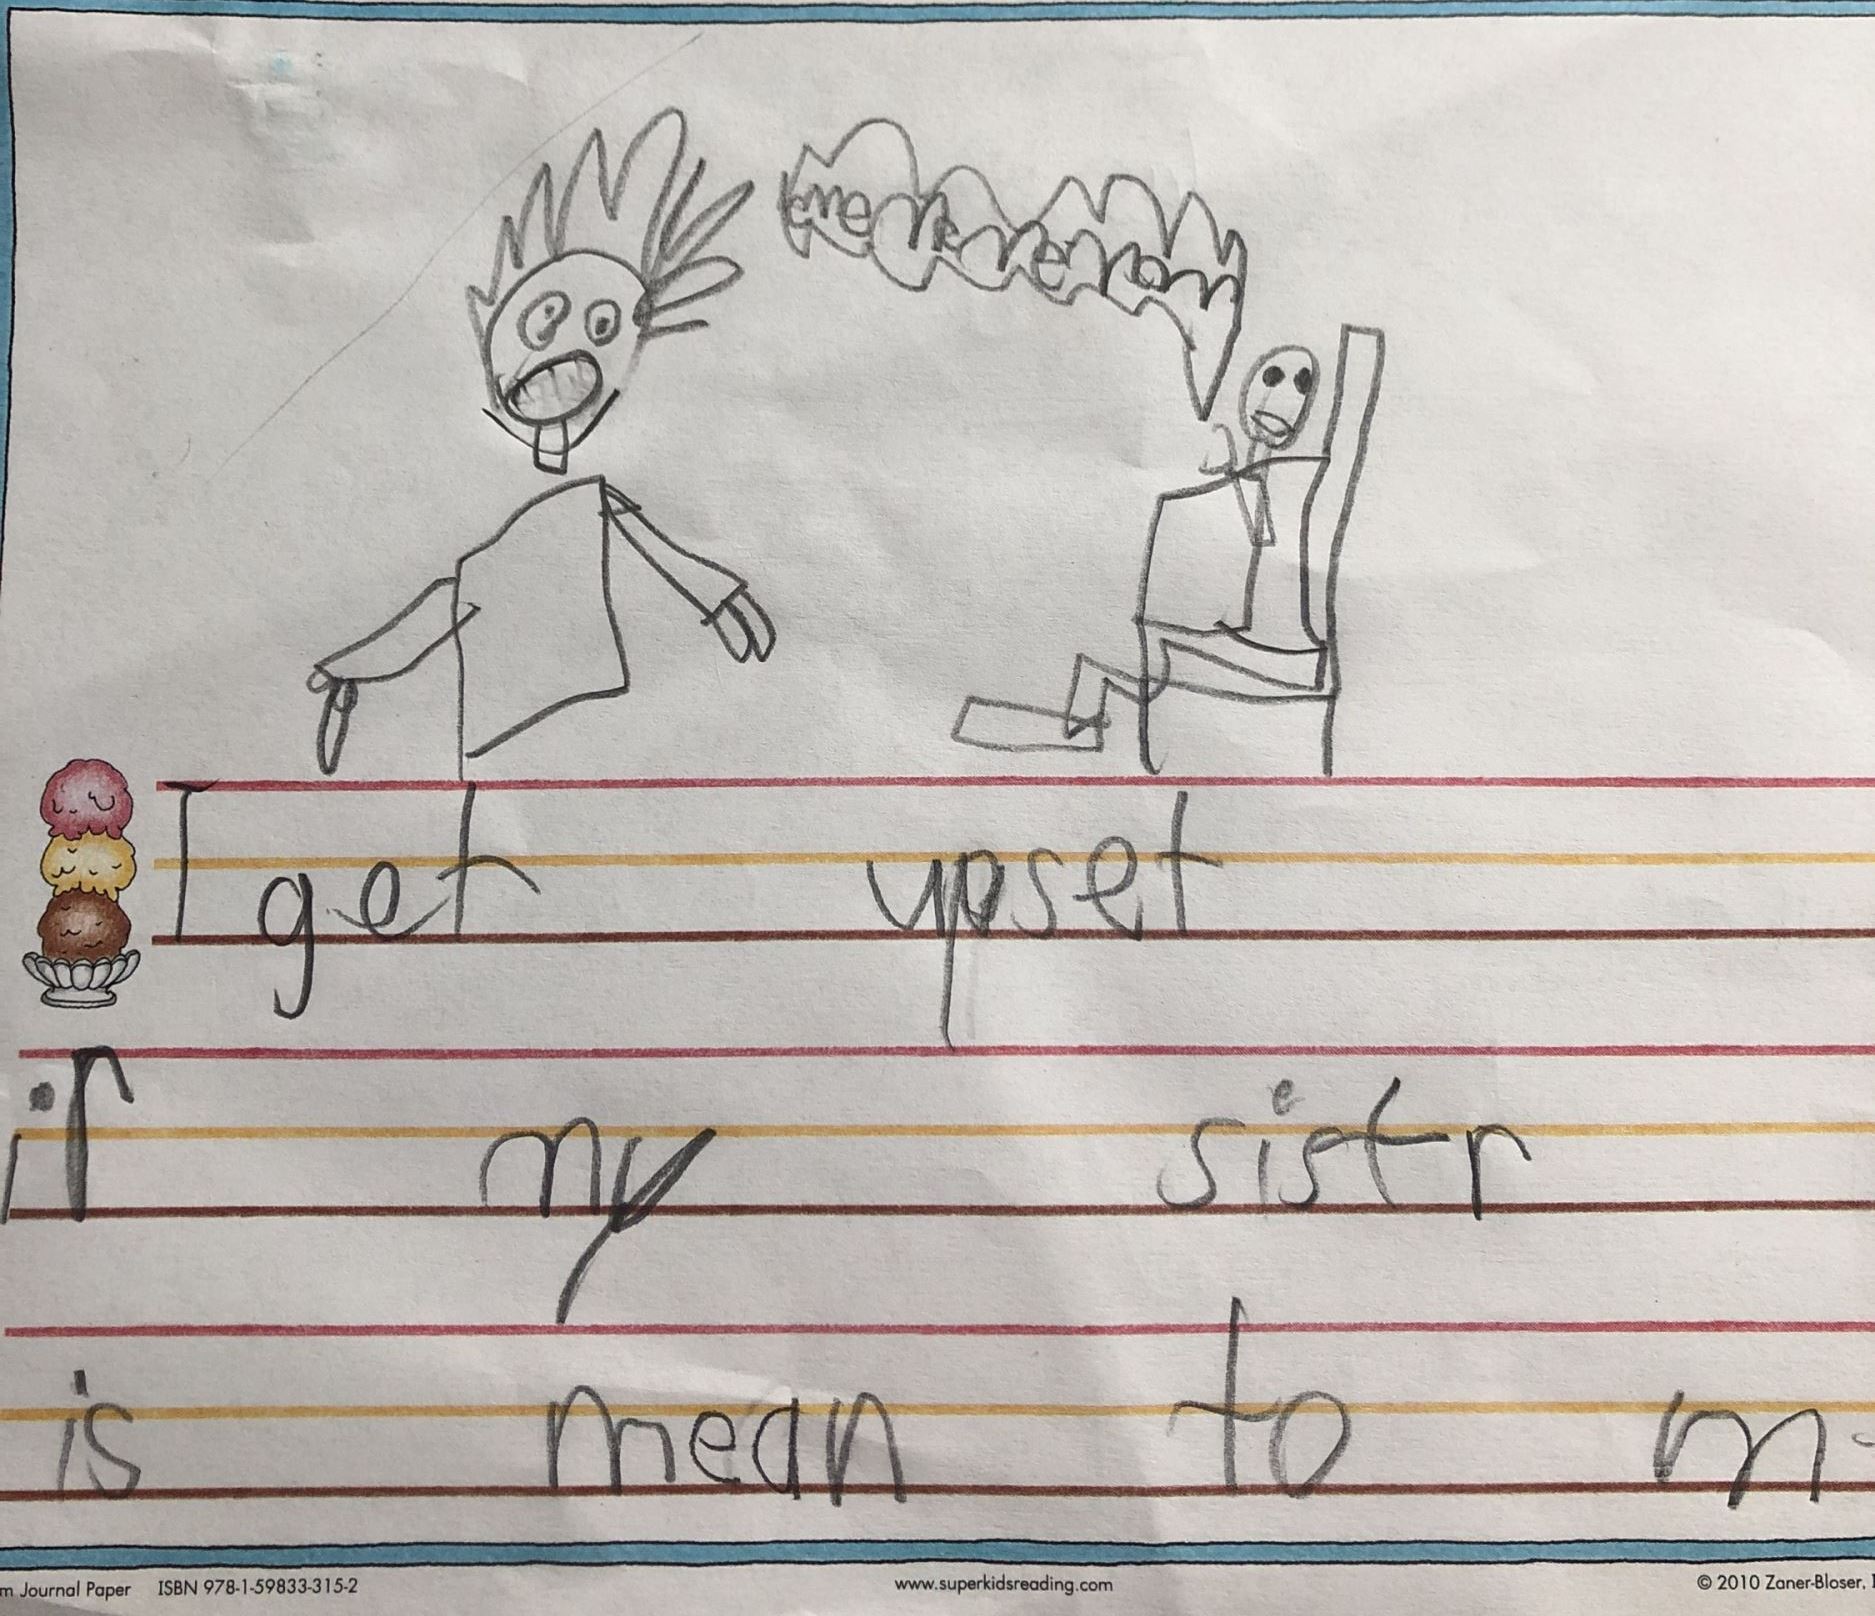 I get upset
if my sistr
is mean to m
m Journal Paper ISBN 978-1-59833-315-2 www.superkidsreading.com © 2010 Zaner-Bloser,